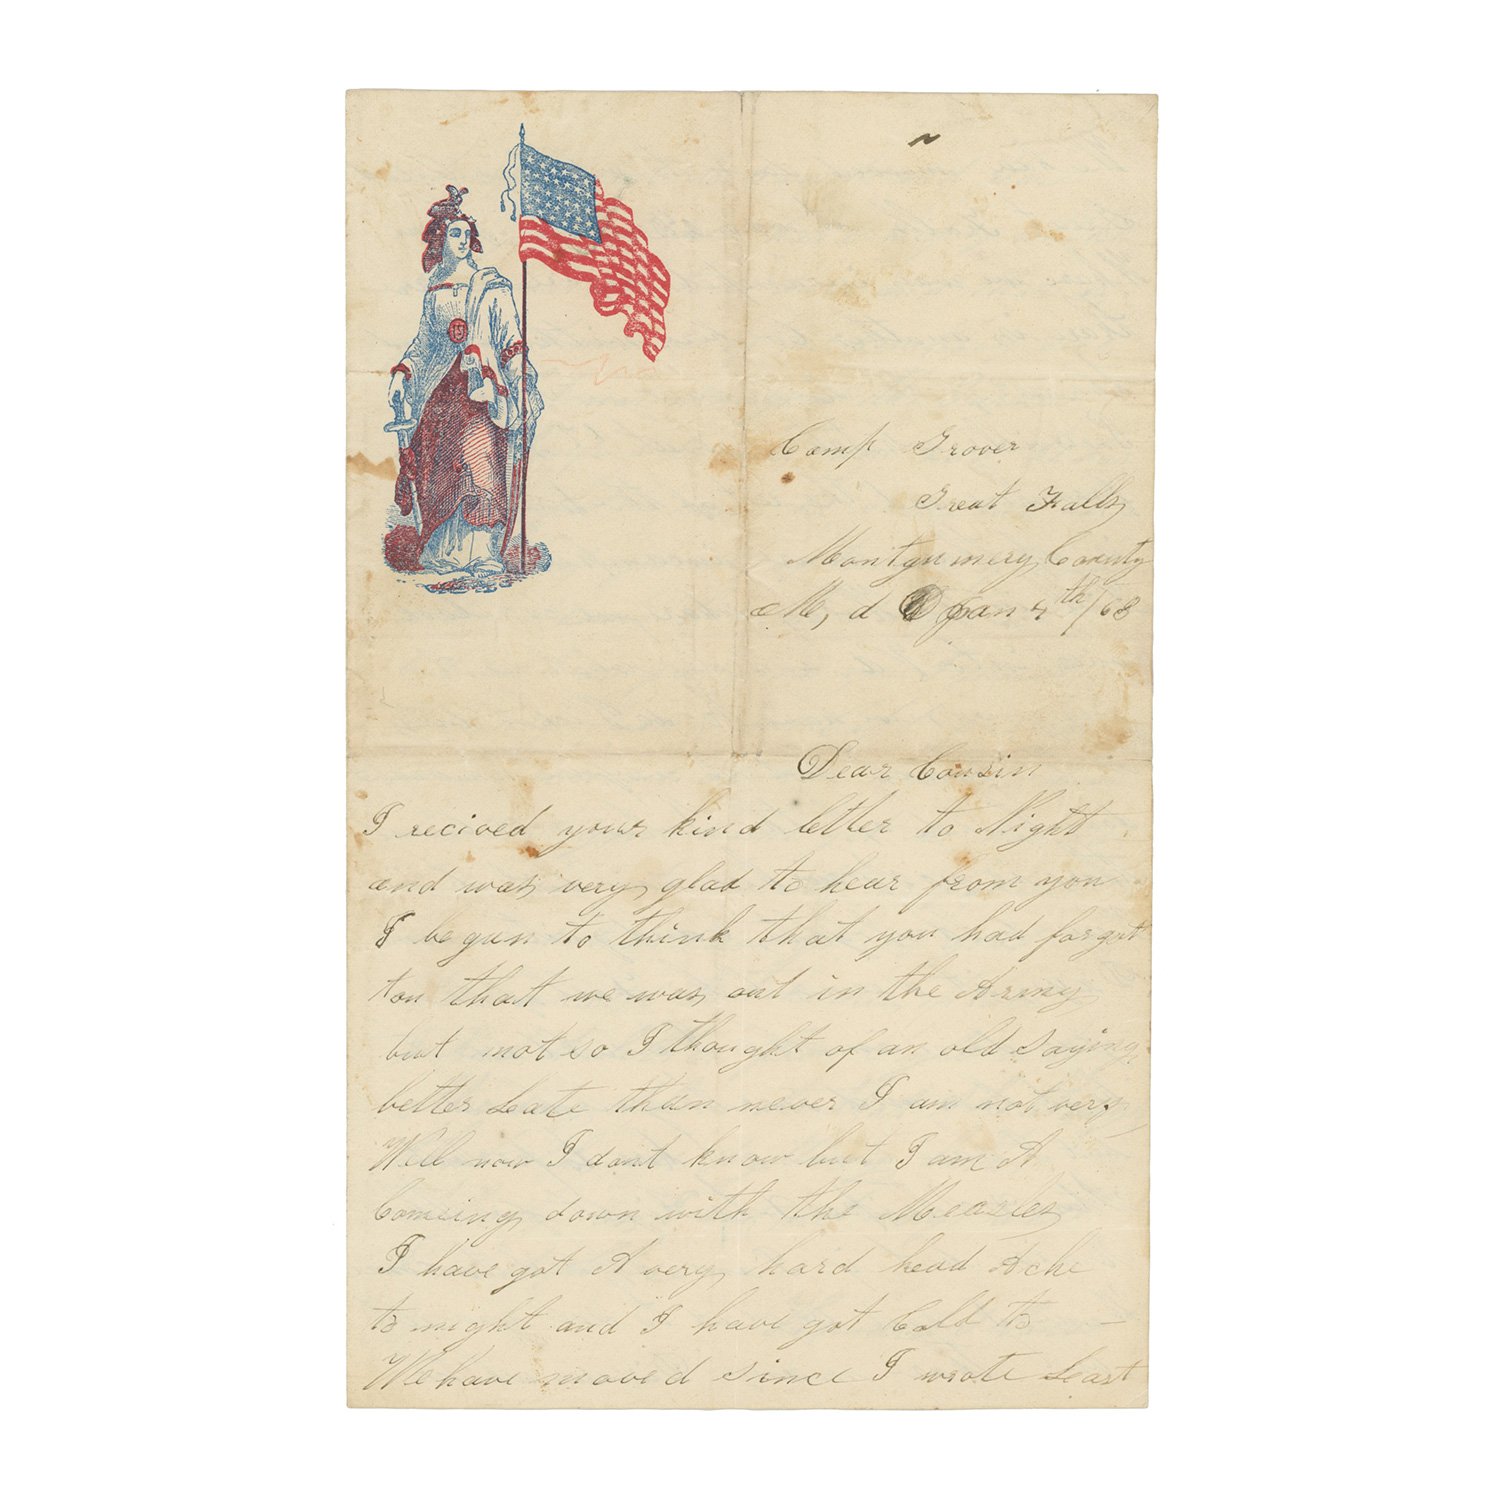 Camp Grover
Great Falls
Montgumery County
M, d Jan 4th/63
Dear Cousin
I recived your kind letter to Night
and was very glad to hear from you
I begun to think that you had forgut
ton that we was out in the Army
but not so I thought of an old saying
better Late than never I am not very
Well now I dont know but I am A
Comeing down with the Measles
I have got A very hard head Ache
to night and I have got Cold to –
We have moved since I wrote Last